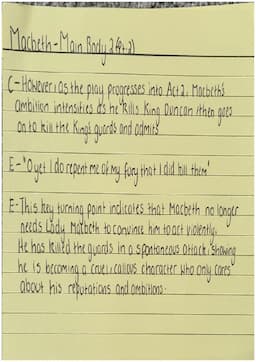 Macbeth - Main Body 2 (Pt.2)
C - However, as the play progresses into Act 2, Macbeth's
ambition intensifies as he kills King Duncan then goes
on to kill the King's guards and admits
E - "O yet I do repent me of my fury that I did kill them"
E - This key turning point indicates that Macbeth no longer
needs Lady Macbeth to convince him to act violently.
He has killed the guards in a spontaneous attack, showing
he is becoming a cruel, callous character who only cares
about his reputations and ambitions.